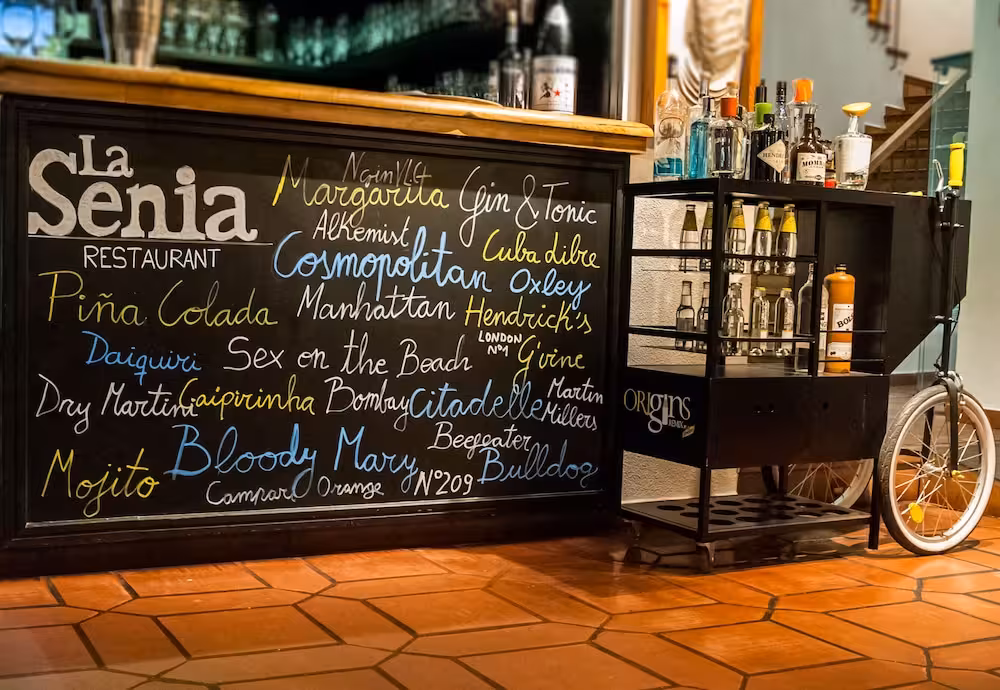 La
Senia
RESTAURANT
NginVLG
Margarita
Gin & Tonic
Alkemist
Cuba Libre
Cosmopolitan
Oxley
Piña Colada
Manhattan
Hendrick's
LONDON
Nº1
Daiquiri
Sex on the Beach
G'vine
Dry Martini
Caipirinha
Bombay
Citadelle
Martin
Millers
Beefeater
Bloody Mary
Bulldog
Mojito
Campari Orange
Nº209
ORIGINS
HENDRICK'S
BOLS